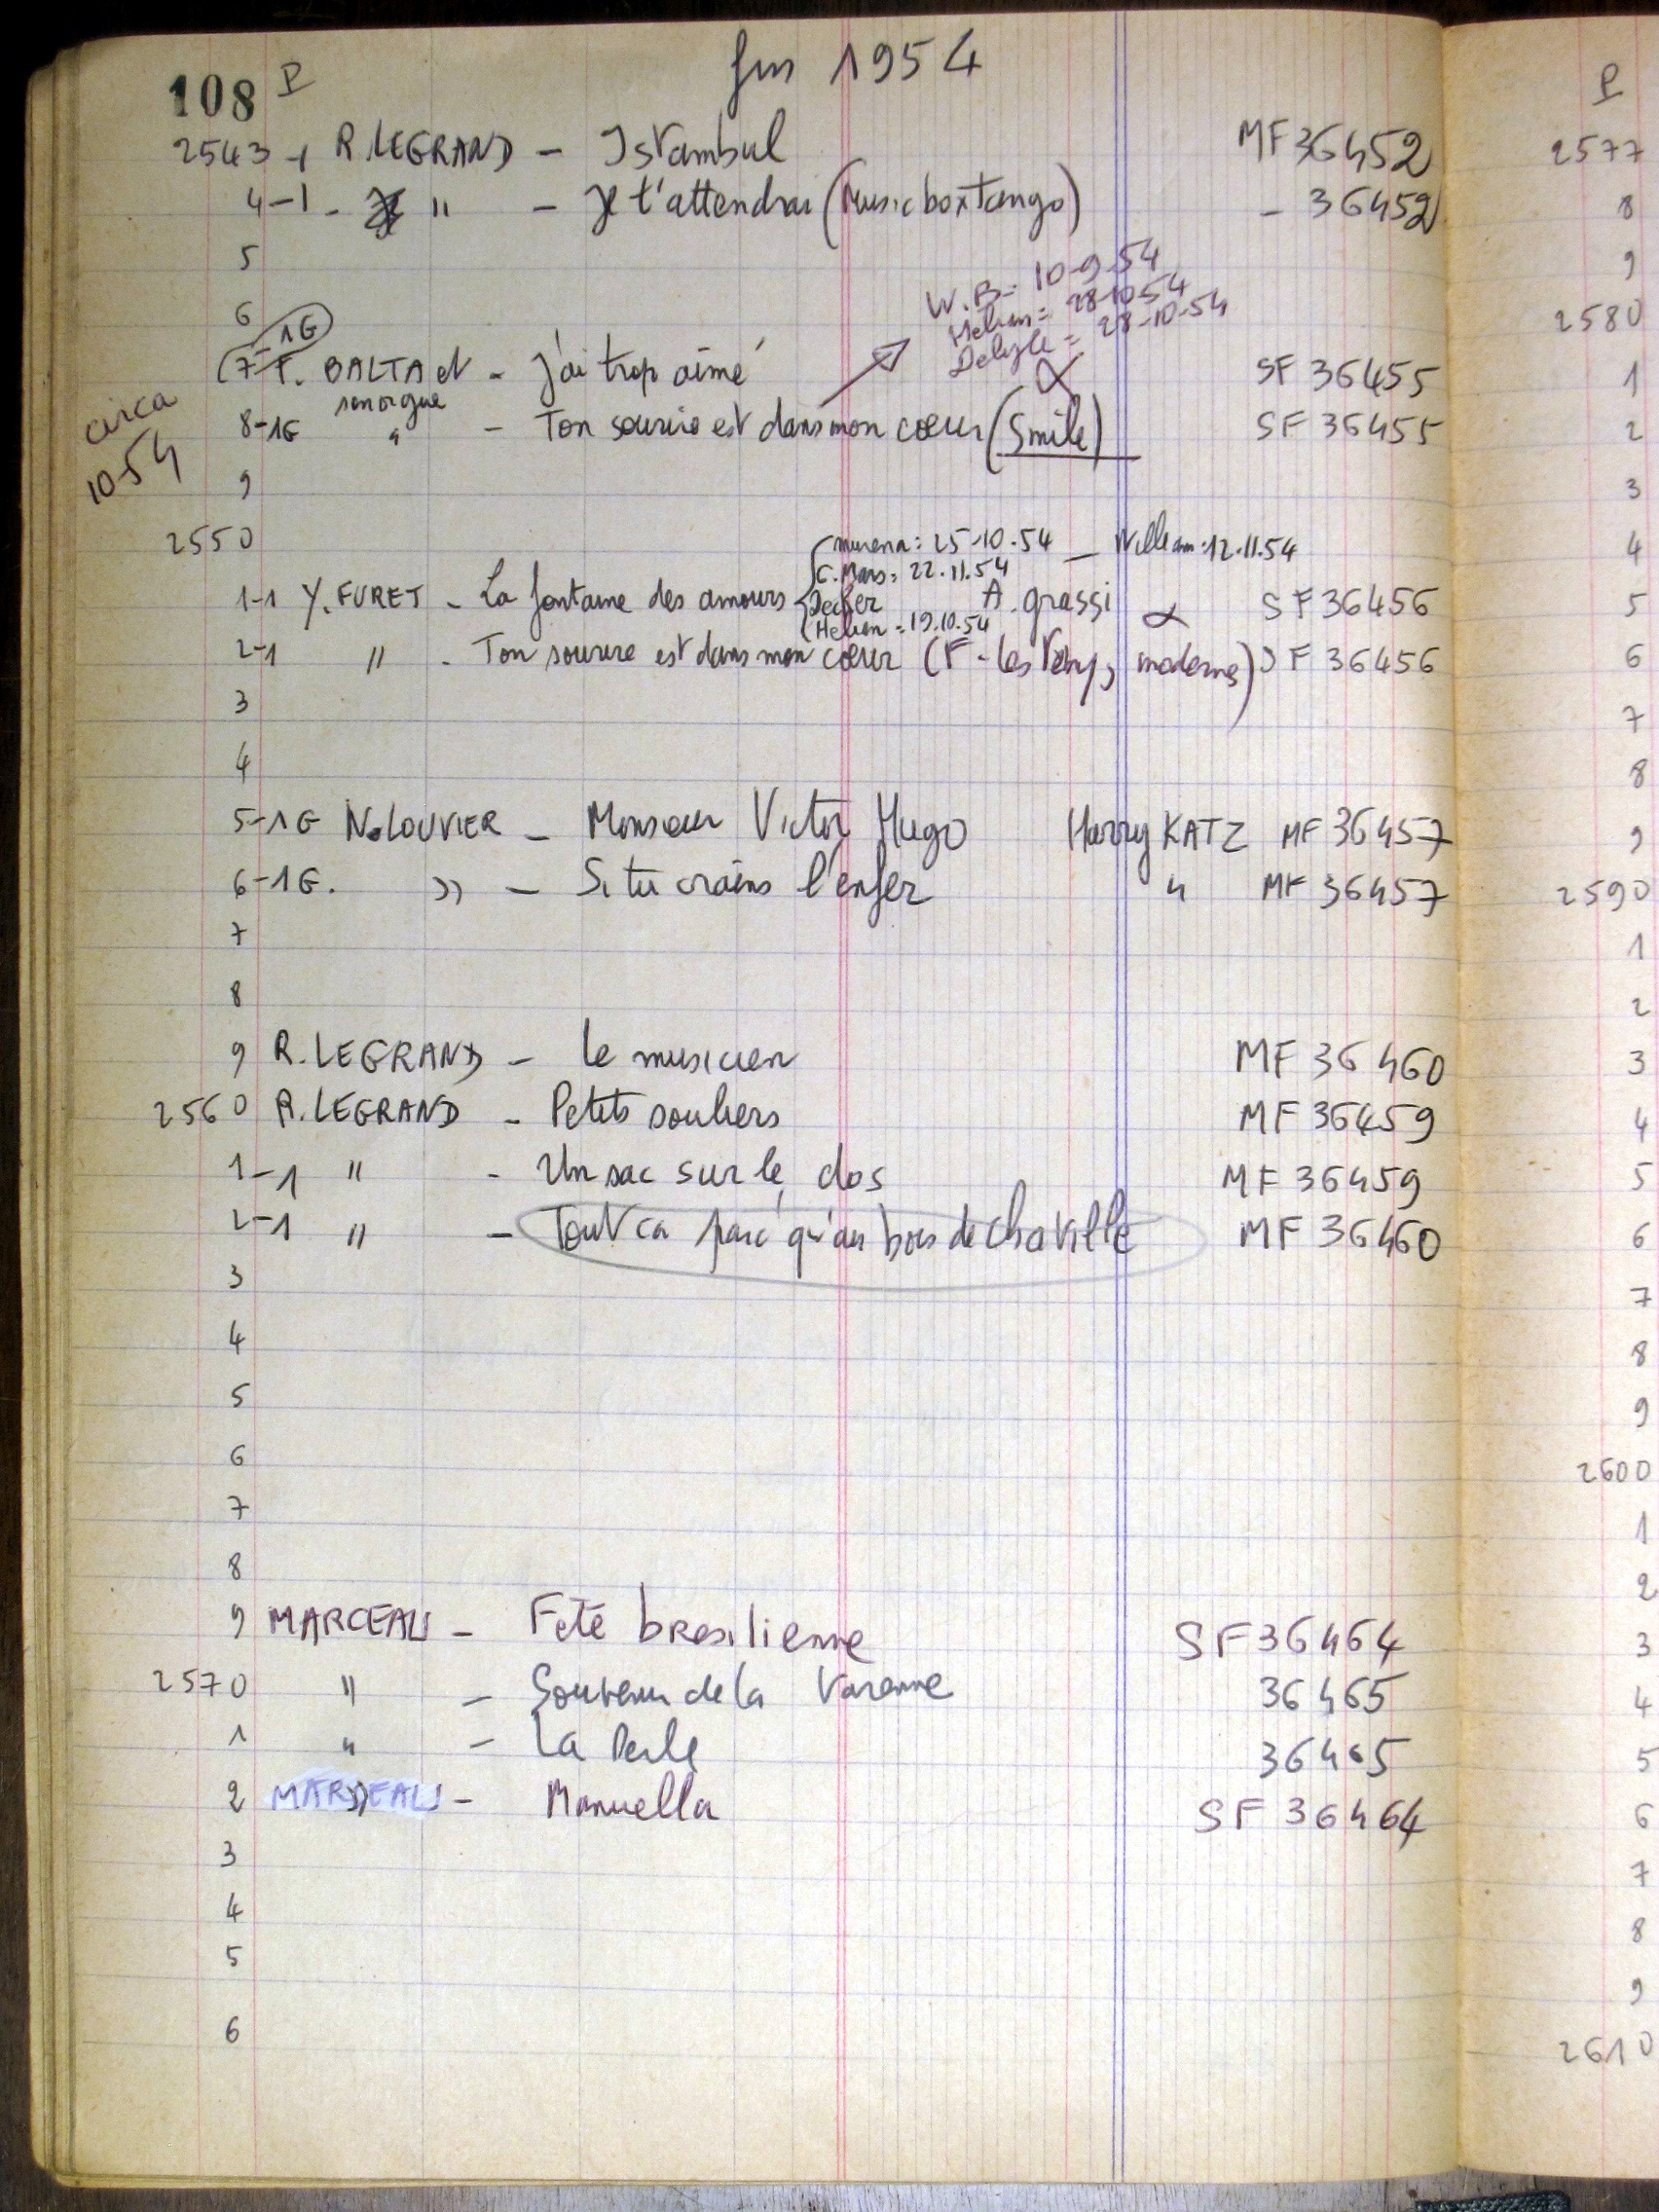 108 P fin 1954
2543-1 R. LEGRAND - Istambul MF 36452
4-1 - " - Je t'attendrai (Music box Tango) - 36452
5
W.B = 10-9-54
Helian = 28-10-54
6
Delyle = 28-10-54
7-1G F. BALTA et - J'ai trop aimé SF 36455
son orgue
circa
10-54
8-1G " - Ton sourire est dans mon cœur (Smile) SF 36455
9
2550
murena: 25-10-54 - William: 12.11.54
C. Mars: 22.11.54
1-1 Y. FURET - La fontaine des amours Decker A. grassi α SF 36456
Helian = 19.10.54
2-1 " - Ton sourire est dans mon cœur (F - les modernes) SF 36456
3
4
5-1G N. LOUVIER - Monsieur Victor Hugo Harry KATZ MF 36457
6-1G. " - Si tu crains l'enfer " MF 36457
7
8
9 R. LEGRAND - Le musicien MF 36460
2560 R. LEGRAND - Petits souliers MF 36459
1-1 " - Un sac sur le dos MF 36459
2-1 " - Tout ca parc' qu'au bois de chaville MF 36460
3
4
5
6
7
8
9 MARCEAU - Fete bresilienne SF 36464
2570 " - Souvenir de la Varenne 36465
1 " - La Perle 36465
2 MARCEAU - Manuella SF 36464
3
4
5
6
P
2577
8
9
2580
1
2
3
4
5
6
7
8
9
2590
1
2
3
4
5
6
7
8
9
2600
1
2
3
4
5
6
7
8
9
2610